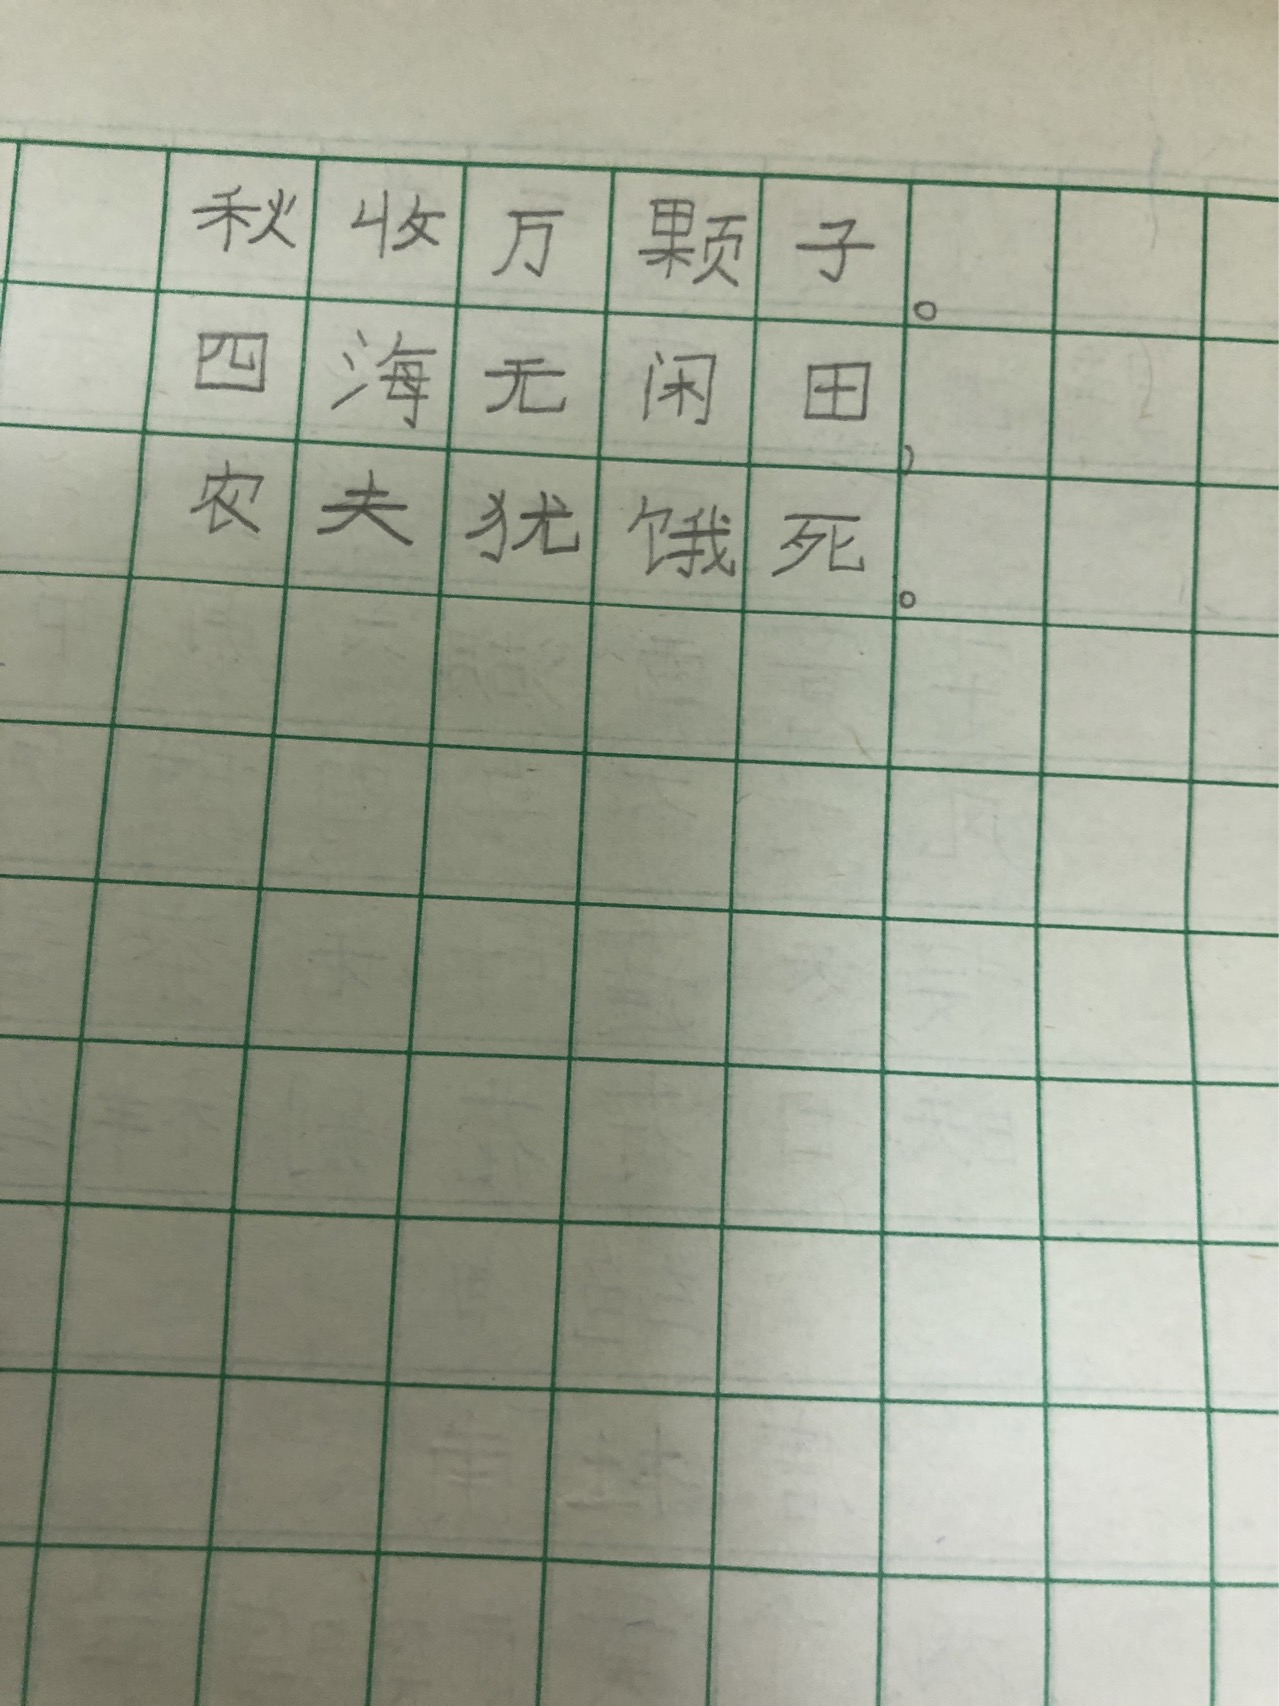 秋收万颗子。
四海无闲田，
农夫犹饿死。